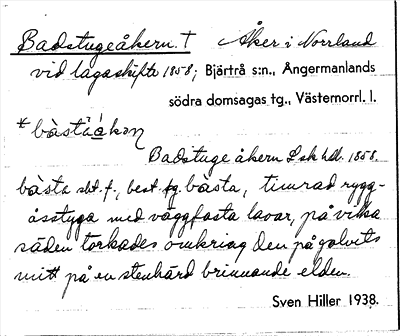 Badstugeåkern. † Åker i Norrland
vid lagaskifte 1858; Bjärtrå s:n., Ångermanlands
södra domsagas tg., Västernorrl. l.
*bàstäåkan
Badstuge åkern Lsk hdl. 1858.
bàsta sbt. f., best. fg. bàsta, timrad rygg-
åsstyga med väggfasta lavar, på vilka
säden torkades omkring den på golvets
mitt på en stenhärd brinnande elden.
Sven Hiller 1938.